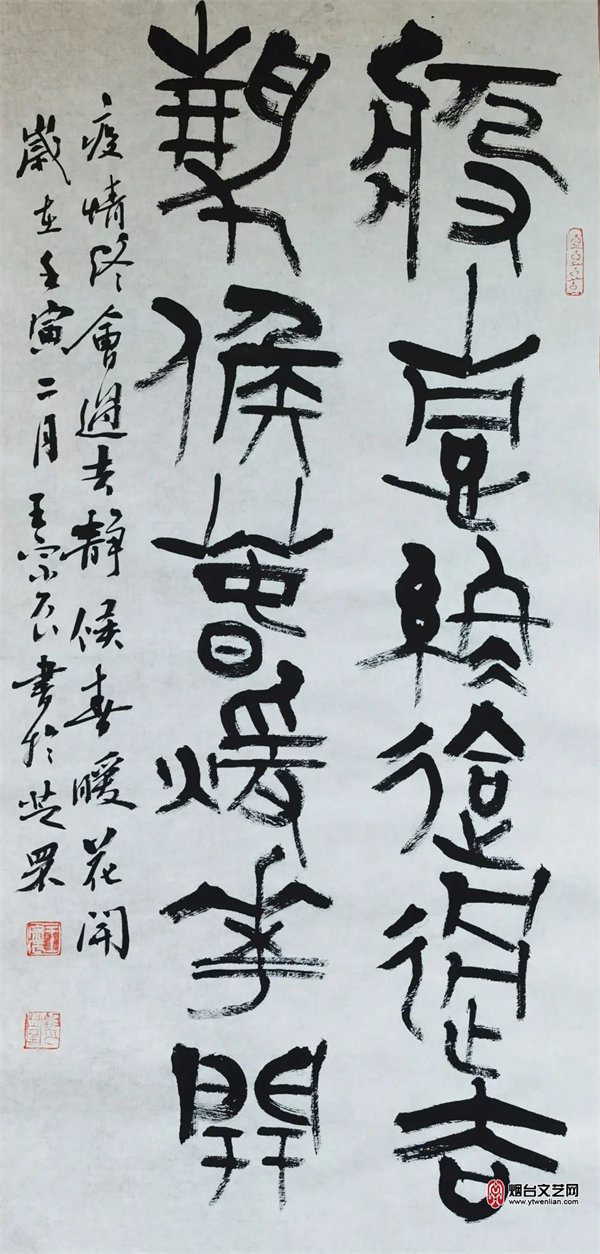 疫情終會過去
靜候春煖華開
疫情終會過去静候春暖花開
歲在壬寅二月王宗書於芝罘
烟台文艺网
www.ytwenlian.com